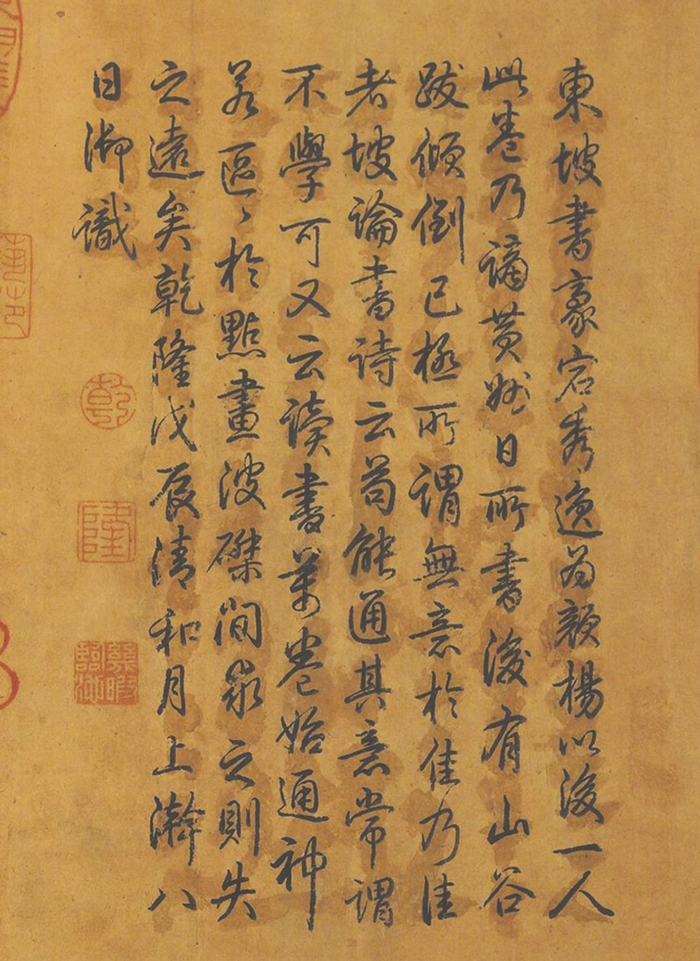 東坡書豪宕秀逸為顏楊以後一人
此卷乃謫黄州日所書後有山谷
跋傾倒已極所謂無意於佳乃佳
者坡論書詩云苟能通其意常謂
不學可又云讀書萬卷始通神
若區〻於點畫波磔間求之則失
之遠矣乾隆戊辰清和月上澣八
日御識
乾
隆